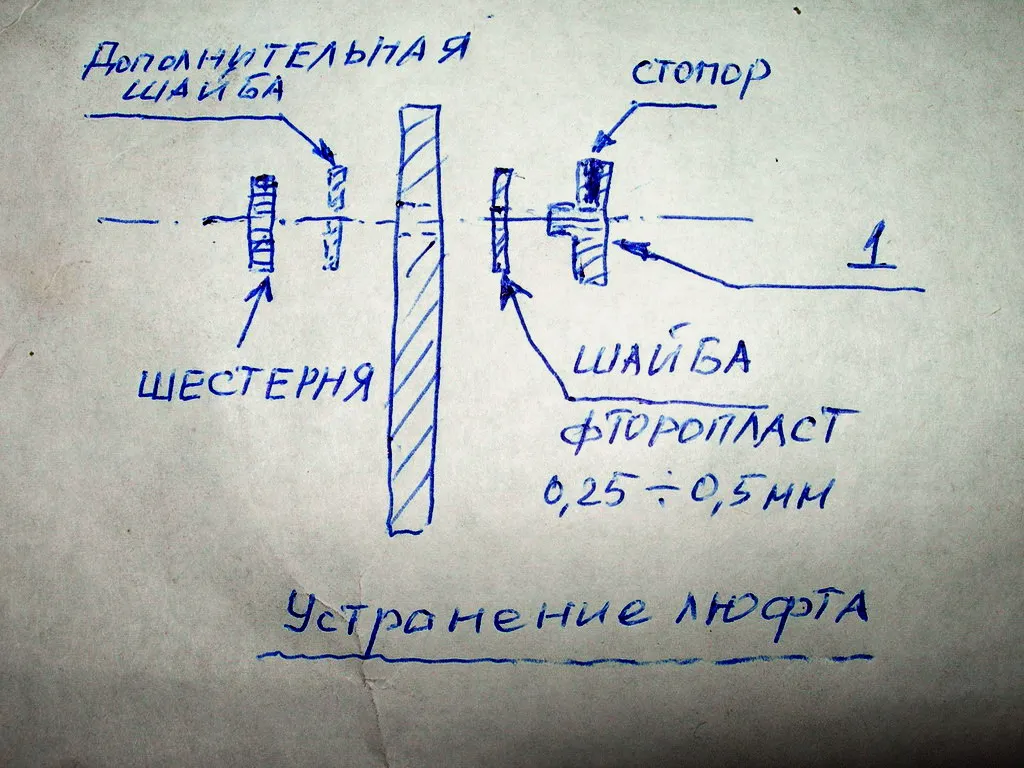 Дополнительная
шайба
стопор
1
шестерня
шайба
фторопласт
0,25÷0,5мм
Устранение люфта